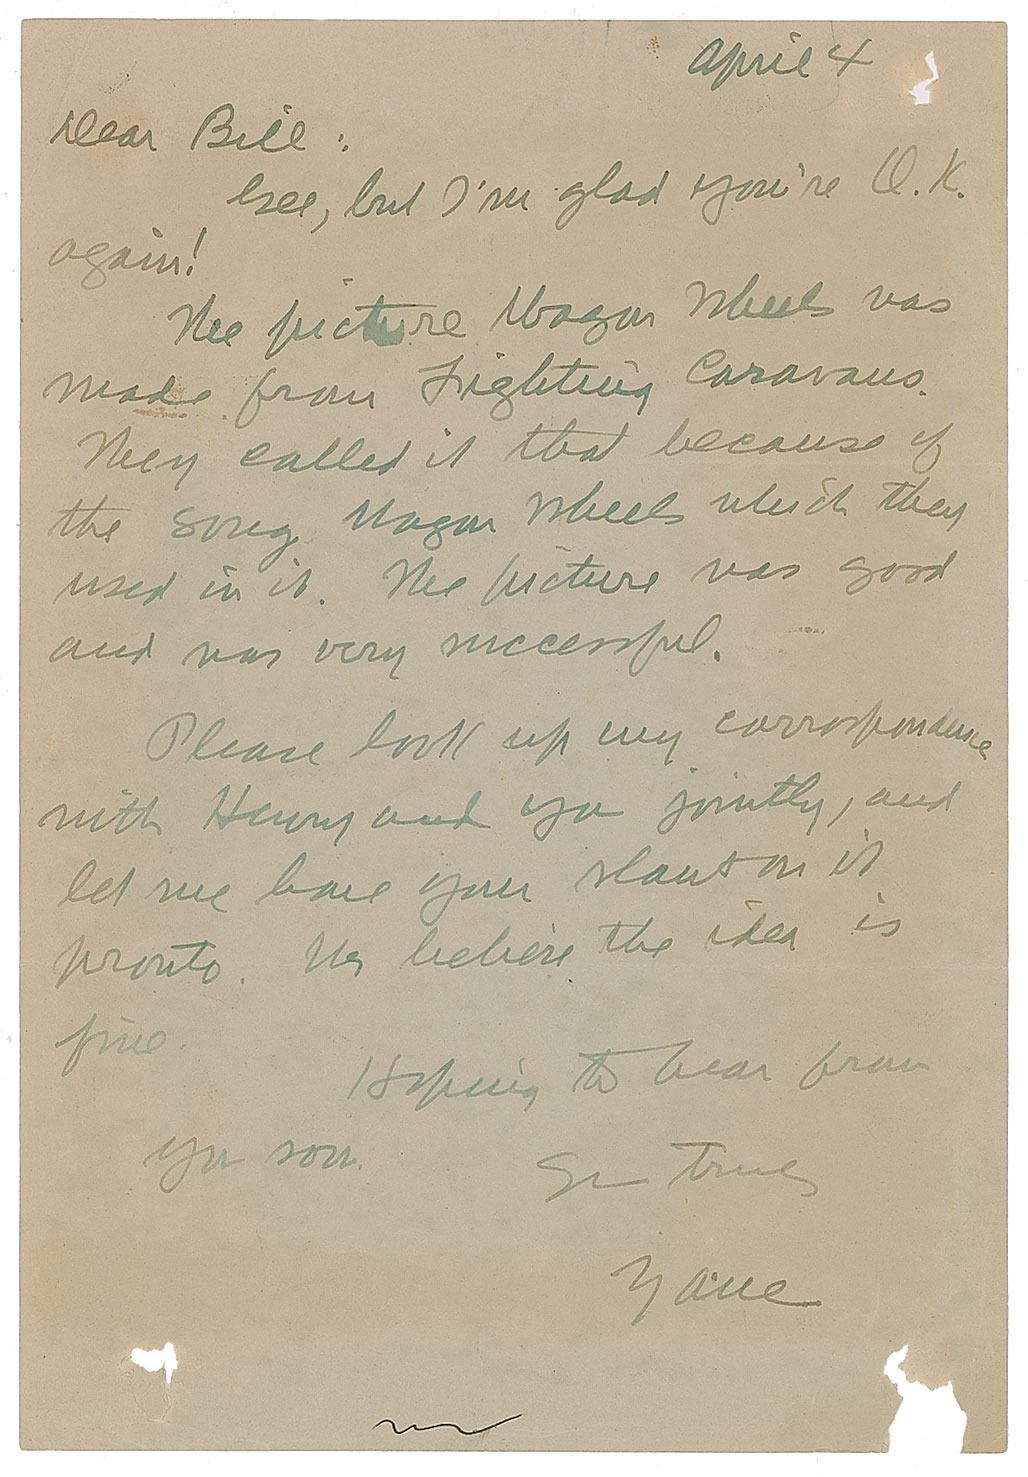 April 4
Dear Bill:
Gee, but I'm glad you're O.K.
again!
The picture Wagon Wheels was
made from Fighting Caravans.
They called it that because of
the song Wagon Wheels which they
used in it. The picture was good
and was very successful.
Please look up my correspondence
with Henry and you jointly, and
let me have your slant on it
pronto. We believe the idea is
fine.
Hoping to hear from
you soon.
truly
Zane